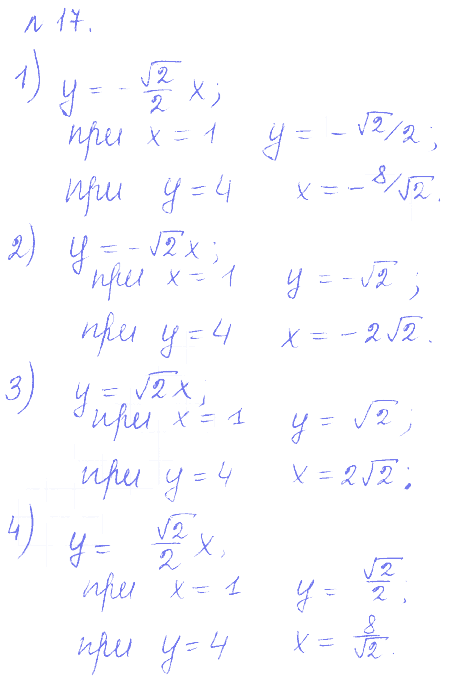 n 17.
1) y = - √2/2 x;
при x = 1 y = - √2/2;
при y = 4 x = - 8/√2.
2) y = - √2 x;
при x = 1 y = - √2;
при y = 4 x = - 2√2.
3) y = √2 x;
при x = 1 y = √2;
при y = 4 x = 2√2.
4) y = √2/2 x,
при x = 1 y = √2/2;
при y = 4 x = 8/√2.